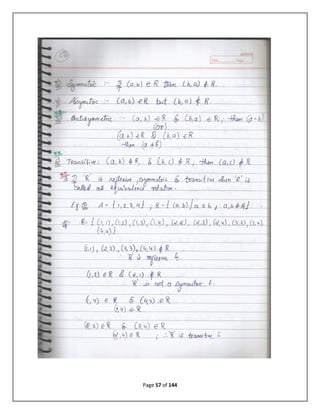 Symmetric :- If (a,b) ∈ R then (b,a) ∉ R.
Asymetric :- (a,b) ∈ R but (b,a) ∉ R.
Antisymmetric :- (a,b) ∈ R & (b,a) ∈ R, then (a=b)
(or)
(a,b) ∈ R & (b,a) ∈ R
then (a≠b)
Transitive: (a,b) ∉ R & (b,c) ∉ R, then (a,c) ∉ R
If 'R' is reflexive, symmetric & transitive then 'R' is
called as equivalence relation.
A = {1,2,3,4} ; R = {(a,b) / a ≤ b , a,b ∈ A}
R: {(1,1), (1,2), (1,3), (1,4), (2,2), (2,3), (2,4), (3,3), (3,4)
(4,4)}
(1,1), (2,2), (3,3), (4,4) ∉ R
R is reflexive
(1,2) ∈ R & (2,1) ∉ R
R is not a symmetric
∈ R & (4,4) ∈ R
∈ R
(2,3) ∈ R & (3,4) ∈ R
(2,4) ∈ R ; ∴ R is transitive
Page 57 of 144